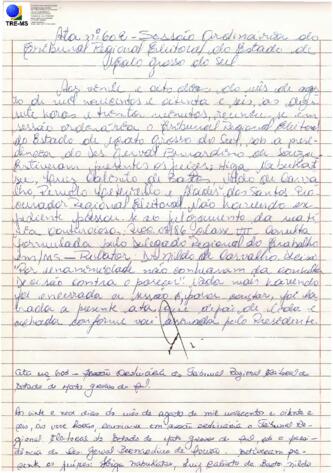 TRE-MS
Ata nº 602 - Sessão Ordinária do
Tribunal Regional Eleitoral do Estado de
Mato Grosso do Sul
Aos vinte e oito dias do mês de agos
to de mil novecentos e oitenta e seis, às dezes
sete horas e trinta minutos, reuniu-se em
sessão ordinária o Tribunal Regional Eleitoral
do Estado de Mato Grosso do Sul, sob a presi-
dência do Des. Gerval Bernardino de Souza.
Estiveram presentes os juízes: Higa Nabukatsu
de Castro, Nildo de Carva
lho, e dos Santos Pro-
curador Regional Eleitoral. Não havendo ex-
pediente passou-se ao julgamento da maté-
ria contenciosa. Classe VII. Consulta
formulada pelo Delegado Regional do Trabalho
em/MS. - Relator: Nildo de Carvalho. Decisão:
"Por unanimidade não conheceram da consulta
Decisão contra o parecer." Nada mais havendo
foi encerrada a sessão e, para constar, foi la-
vrada a presente ata, que depois de lida e
achada conforme vai assinada pelo Presidente.
Ata nº 603 - Sessão Ordinária do Tribunal Regional Eleitoral do
Estado de Mato Grosso do Sul.
Aos vinte e nove dias do mês de agosto de mil novecentos e oitenta e
seis, às horas, reuniu-se em sessão ordinária o Tribunal Re-
gional Eleitoral do Estado de Mato Grosso do Sul, sob a presi-
dência do Des. Gerval Bernardino de Souza. Estiveram pre-
sentes os juízes: Higa Nabukatsu, de Castro, Nildo